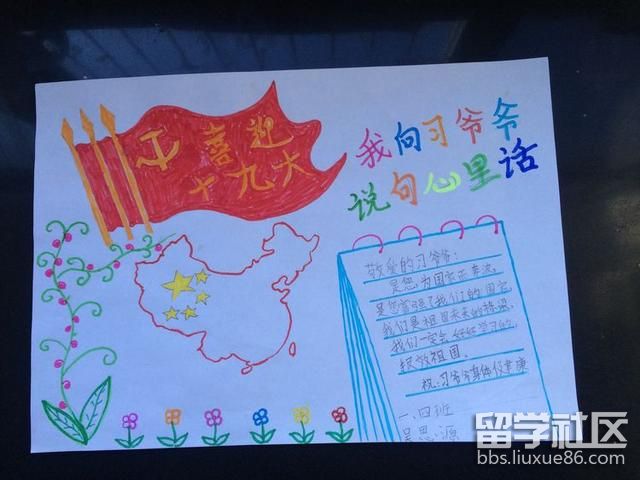 喜迎
十九大
我向习爷爷
说句心里话
敬爱的习爷爷:
是您,为国家正奉流,
是您富强了我们的国家,
我们是祖国未来的栋梁,
我们一定会好好学习的,
报效祖国。
祝:习爷爷身体健康
一、四班
吴思源
留学社区
bbs.liuxue86.com